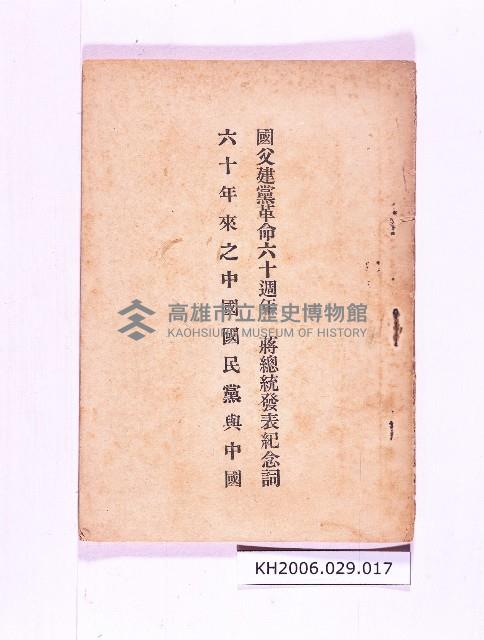 國父建黨革命六十週年 蔣總統發表紀念詞
六十年來之中國國民黨與中國
高雄市立歷史博物館
KAOHSIUNG MUSEUM OF HISTORY
KH2006.029.017